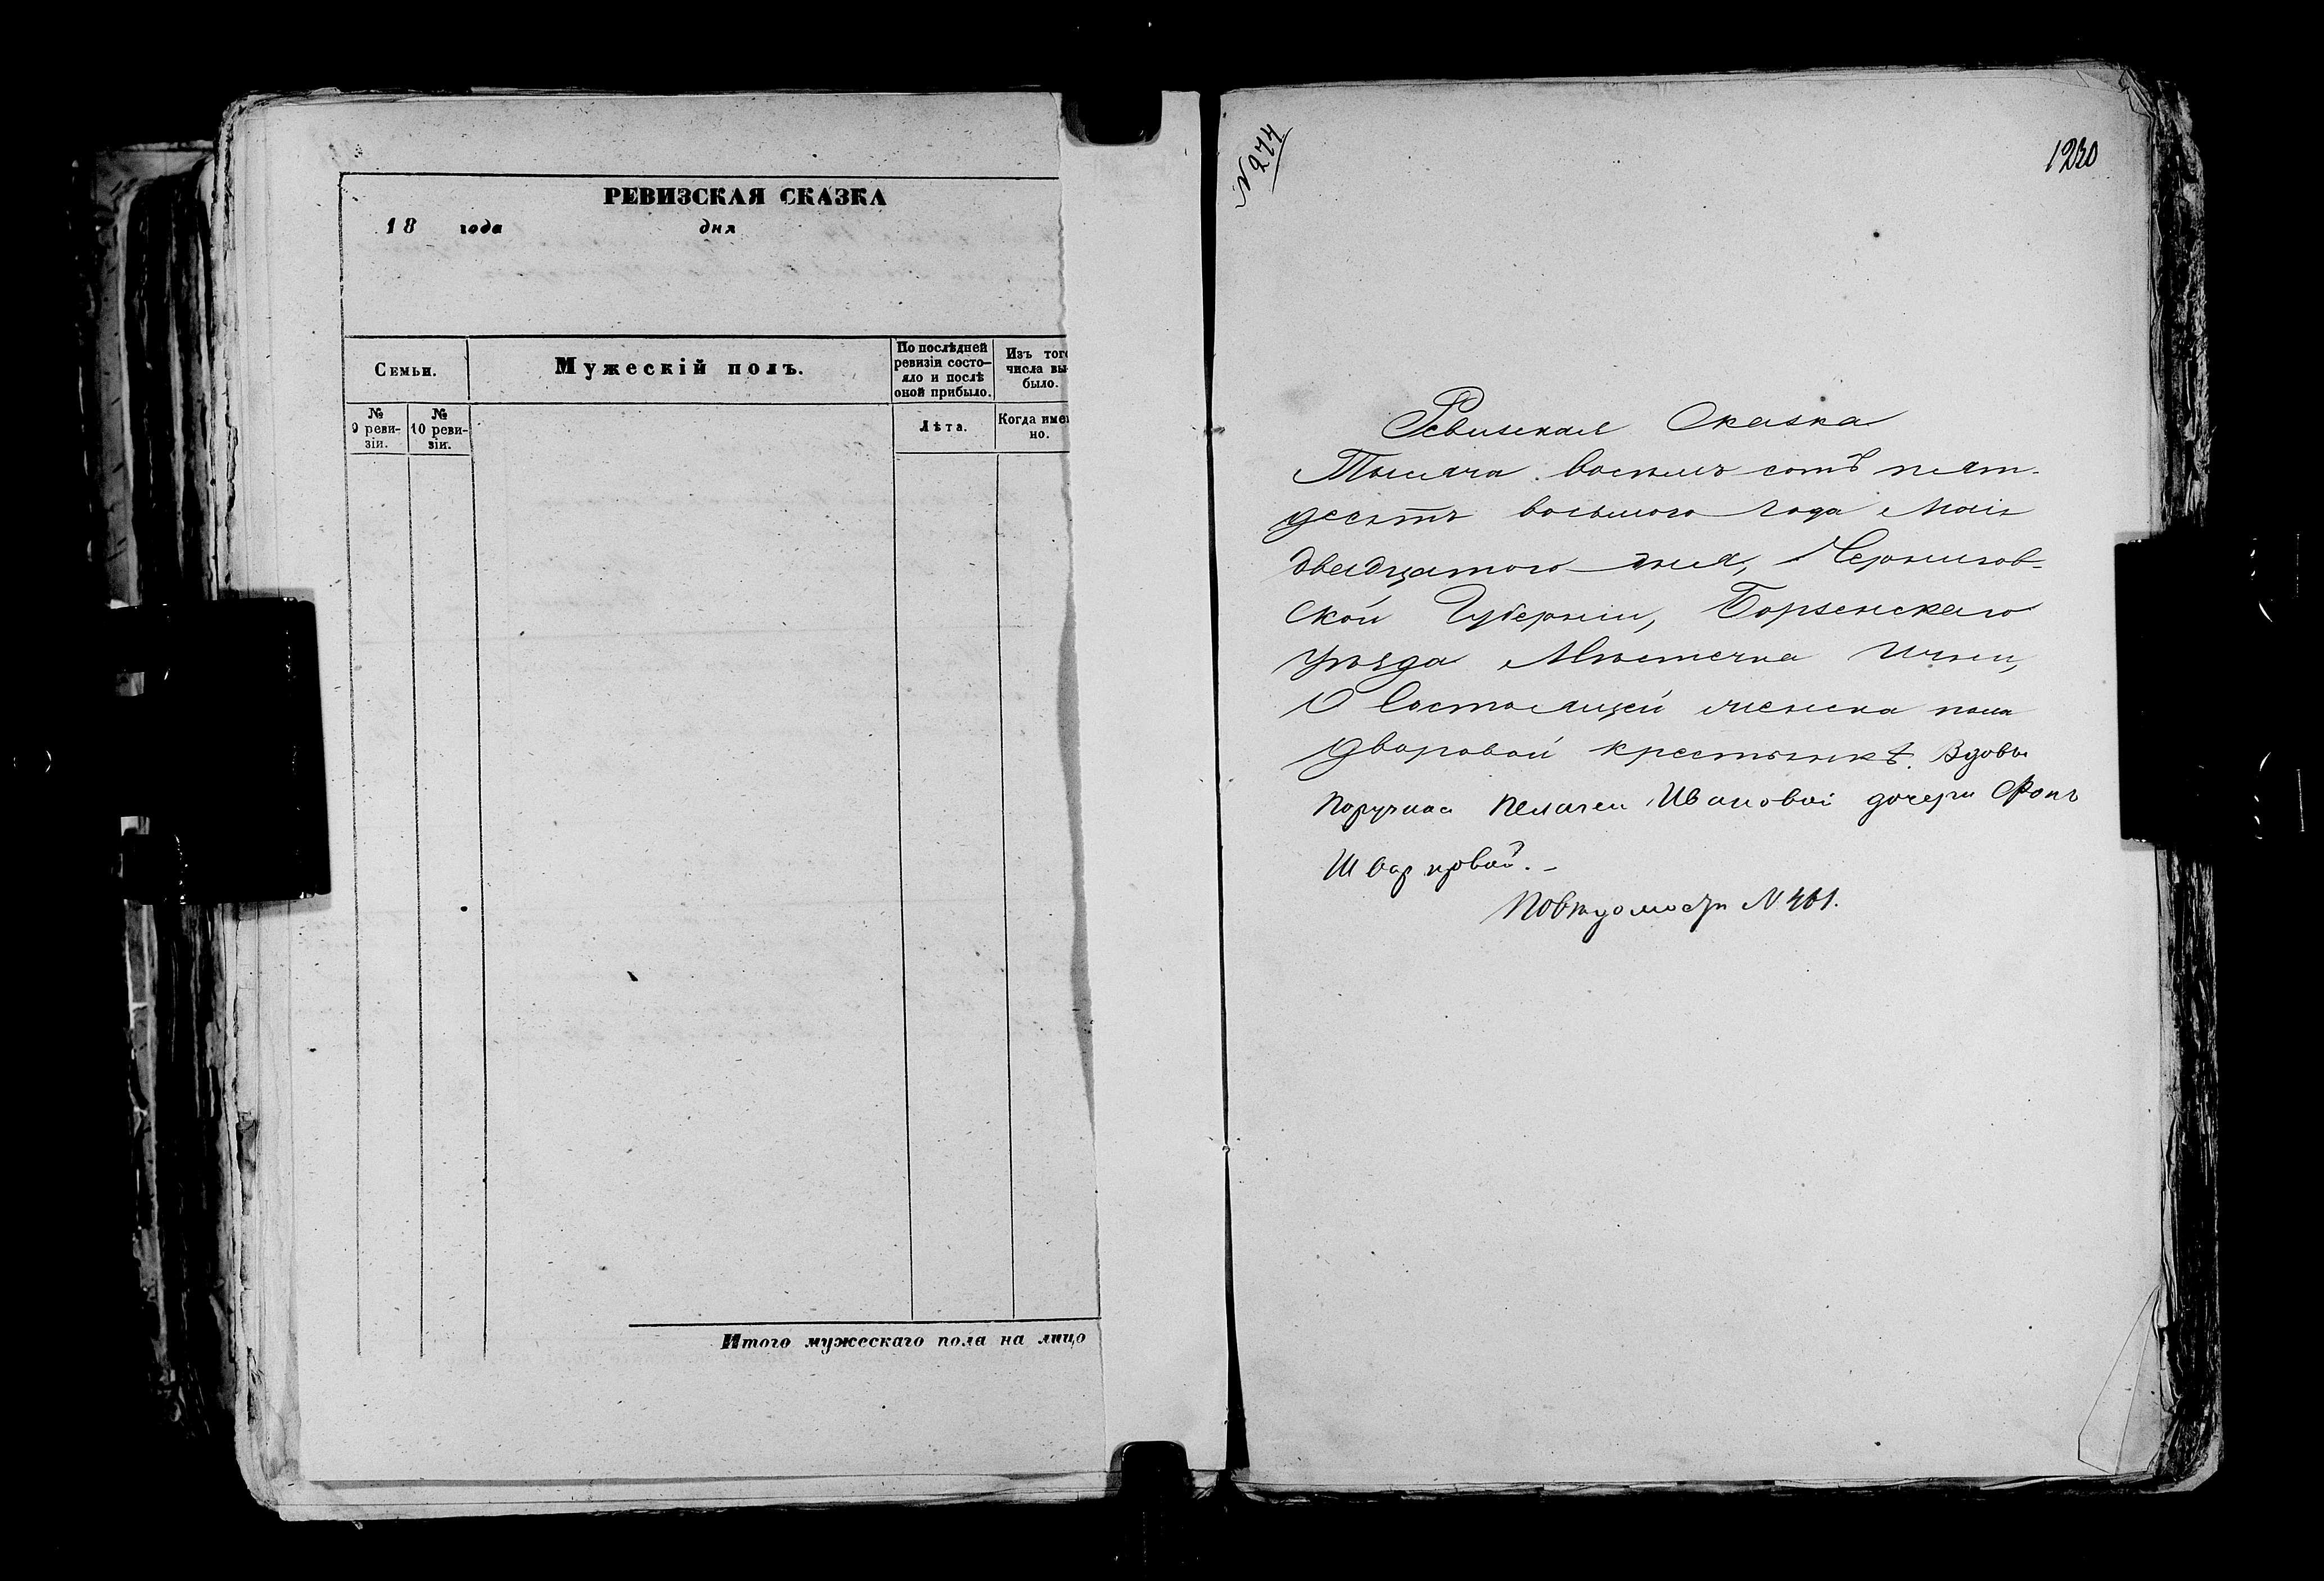 РЕВИЗСКАЯ СКАЗКА
18 года дня
Семьи.
Мужескій полъ.
По послѣдней
ревизіи состо-
яло и послѣ
оной прибыло.
Изъ того
числа вы-
было.
№
9 реви-
зіи.
№
10 реви-
зіи.
Лѣта.
Когда имен
но.
Итого мужескаго пола на лицо
N 274
1230
Ревизская Сказка
Тысяча восемь сотъ пят-
десятъ восьмого года Маія
двадцатого дня, Чернигов-
ской Губерніи, Борзенскаго
уѣзда Мѣстечка Ични,
О Состоящей женска пола
дворовой крестьянкѣ. Вдовы
Поручика Пелагеи Ивановой дочери Фонъ
Шварцовой. –
По вѣдомости N 461.